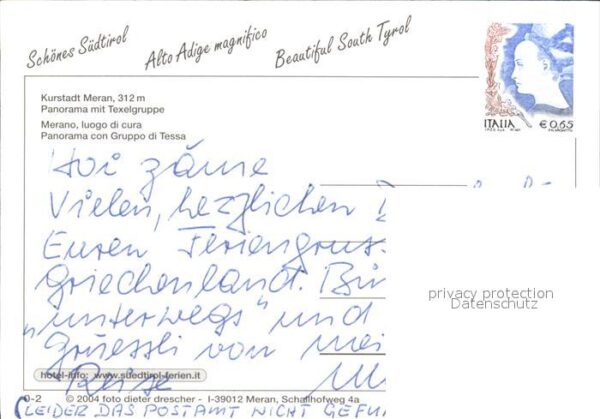 Schönes Südtirol
Alto Adige magnifico
Beautiful South Tyrol
ITALIA € 0,65
Kurstadt Meran, 312 m
Panorama mit Texelgruppe
Merano, luogo di cura
Panorama con Gruppo di Tessa
Hoi zäme
Vielen, herzlichen
Euren Feriengrus
Griechenland. Bin
"unterwegs" und
grüessli von mei
Reise
privacy protection
Datenschutz
hotel-info: www.suedtirol-ferien.it
0-2 © 2004 foto dieter drescher - I-39012 Meran, Schaffhofweg 4a
(LEIDER DAS POSTAMT NICHT GEFU